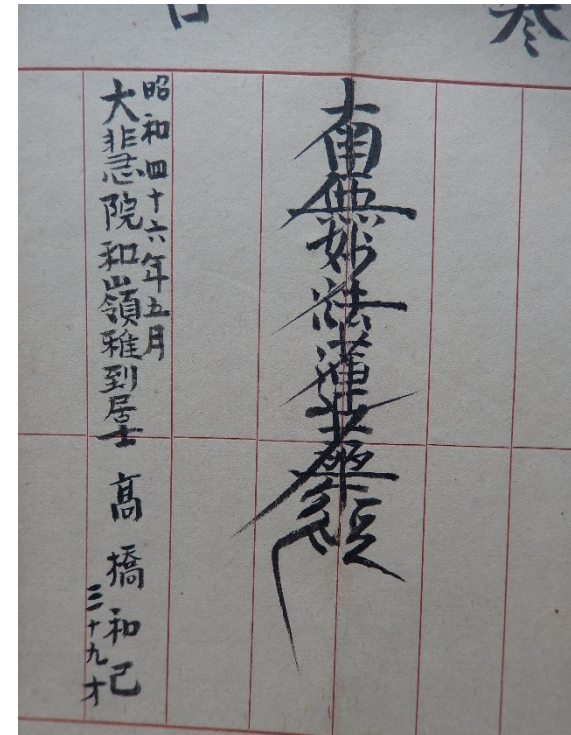 日
南無妙法蓮華経
昭和四十六年五月
大悲院和嶺雅到居士 高橋和己
三十九才